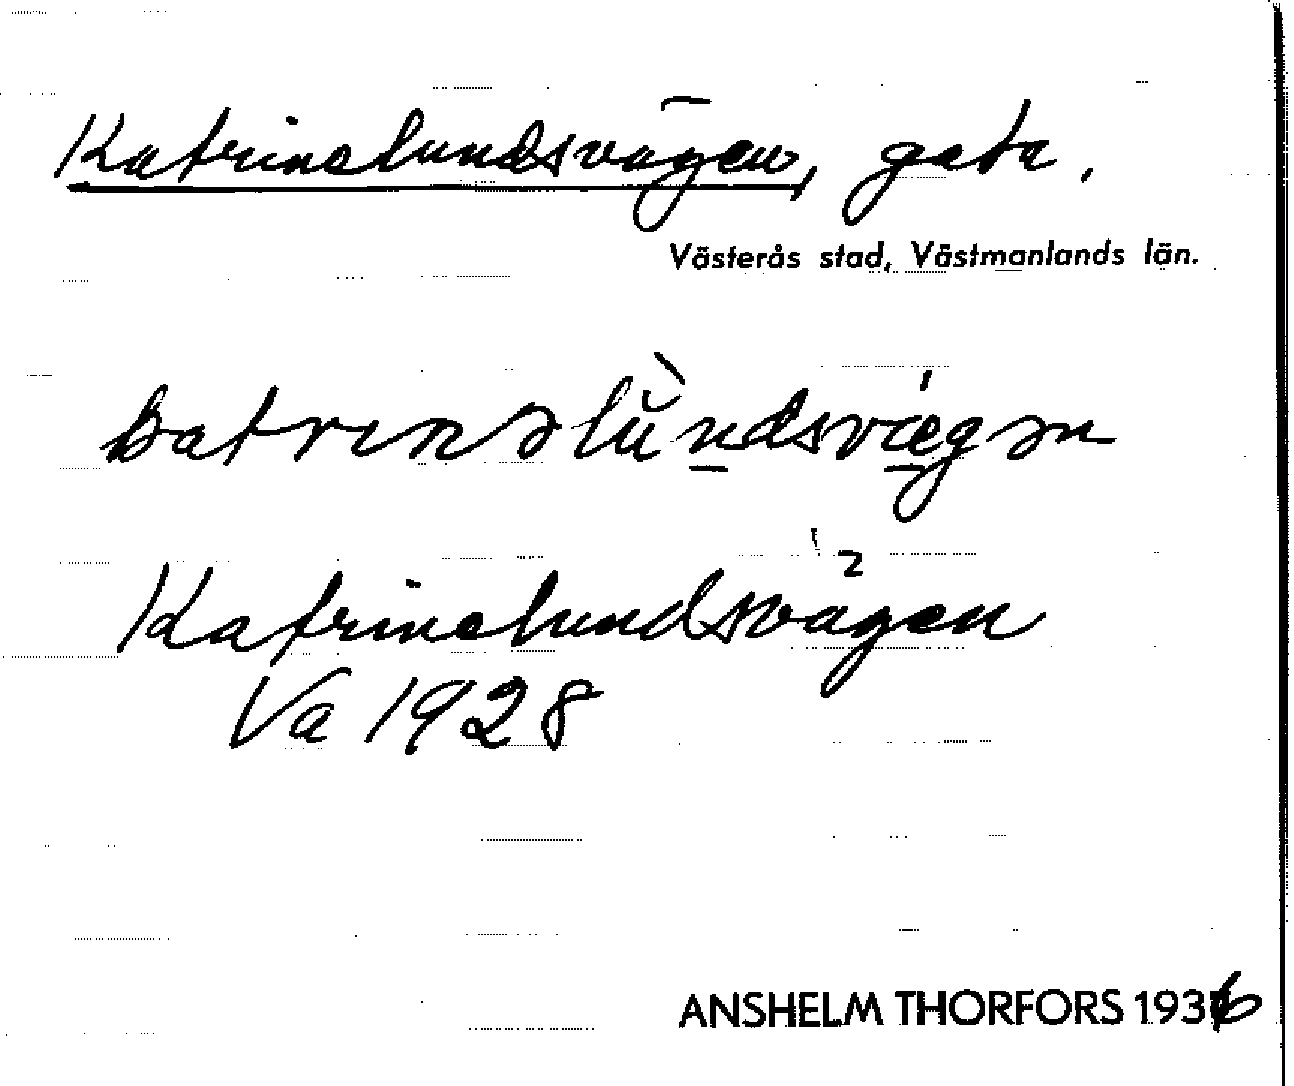 Katrinelundsvägen, gata.
Västerås stad, Västmanlands län.
katrinəlùndsvǽgən
Katrinelundsvägen
Va 1928
ANSHELM THORFORS 1936